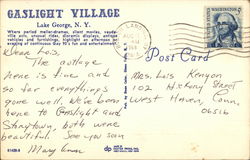 GASLIGHT VILLAGE
Lake George, N. Y.
Where parted meller-dramas, silent movies, vaude-
ville acts, unusual rides, dioramic displays, antique
vehicles and furnishings, highlight an afternoon or
evening of continuous Gay 90's fun and entertainment.
Post Card
Dear Lois,
The cottage
here is fine and
so far everything's
gone well. We've been
here to Gaslight and
Storytown, both were
beautiful. See you soon
Mary Ann
Mrs. Lois Kenyon
102
Street
West Haven, Conn.
06516